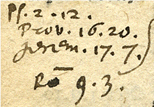 Ps. 2. 12.
Prov. 16. 20.
Jerem. 17. 7.
Ro 9. 3.